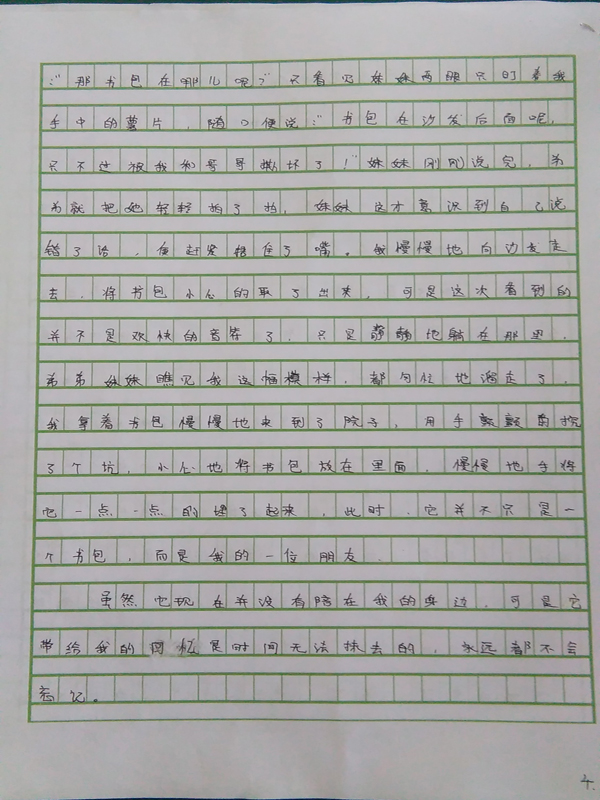 ：“那书包在哪儿呢？”只看见妹妹两眼只盯着我
手中的薯片，随口便说：“书包在沙发后面呢，
只不过被我和哥哥撕坏了！”妹妹刚刚说完，弟
弟就把她轻轻拍了拍，妹妹这才意识到自己说
错了话，便赶紧捂住了嘴。我慢慢地向沙发走
去，将书包小心的取了出来，可是这次看到的
并不是欢快的音符了，只是静静地躺在那里，
弟弟妹妹瞧见我这幅模样，都匆忙地溜走了，
我拿着书包慢慢地来到了院子，用手颤颤的挖
了个坑，小心地将书包放在里面，慢慢地手将
它一点一点的埋了起来，此时，它并不只是一
个书包，而是我的一位朋友．
虽然它现在并没有陪在我的身边，可是它
带给我的回忆是时间无法抹去的，永远都不会
忘记。
4.